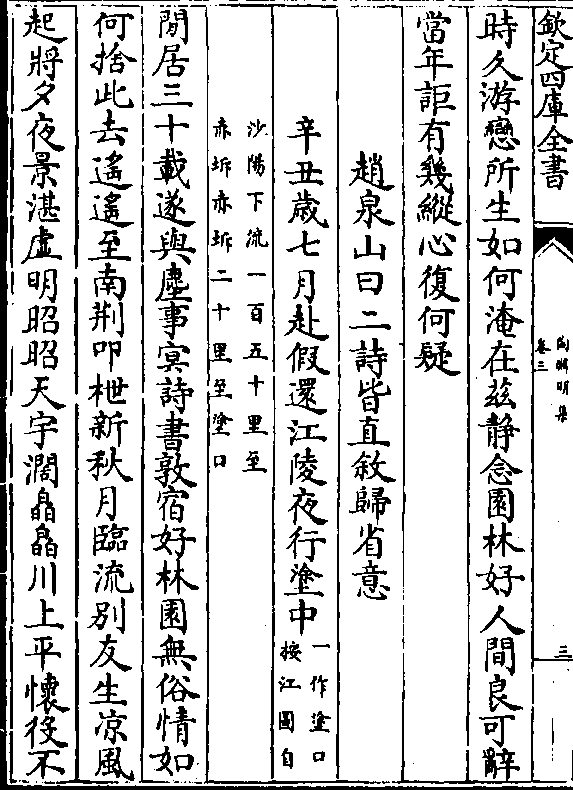 欽定四庫全書
陶淵明集
卷三
三
時久游戀所生如何淹在兹静念園林好人間良可辭
當年詎有幾縱心復何疑
趙泉山曰二詩皆直敘歸省意
辛丑歲七月赴假還江陵夜行塗中一作塗口
按江圖自
沙陽下流一百五十里至
赤圻赤圻二十里至塗口
閒居三十載遂與塵事冥詩書敦宿好林園無俗情如
何捨此去遙遙至南荆叩枻新秋月臨流别友生凉風
起將夕夜景湛虚明昭昭天宇濶皛皛川上平懷役不